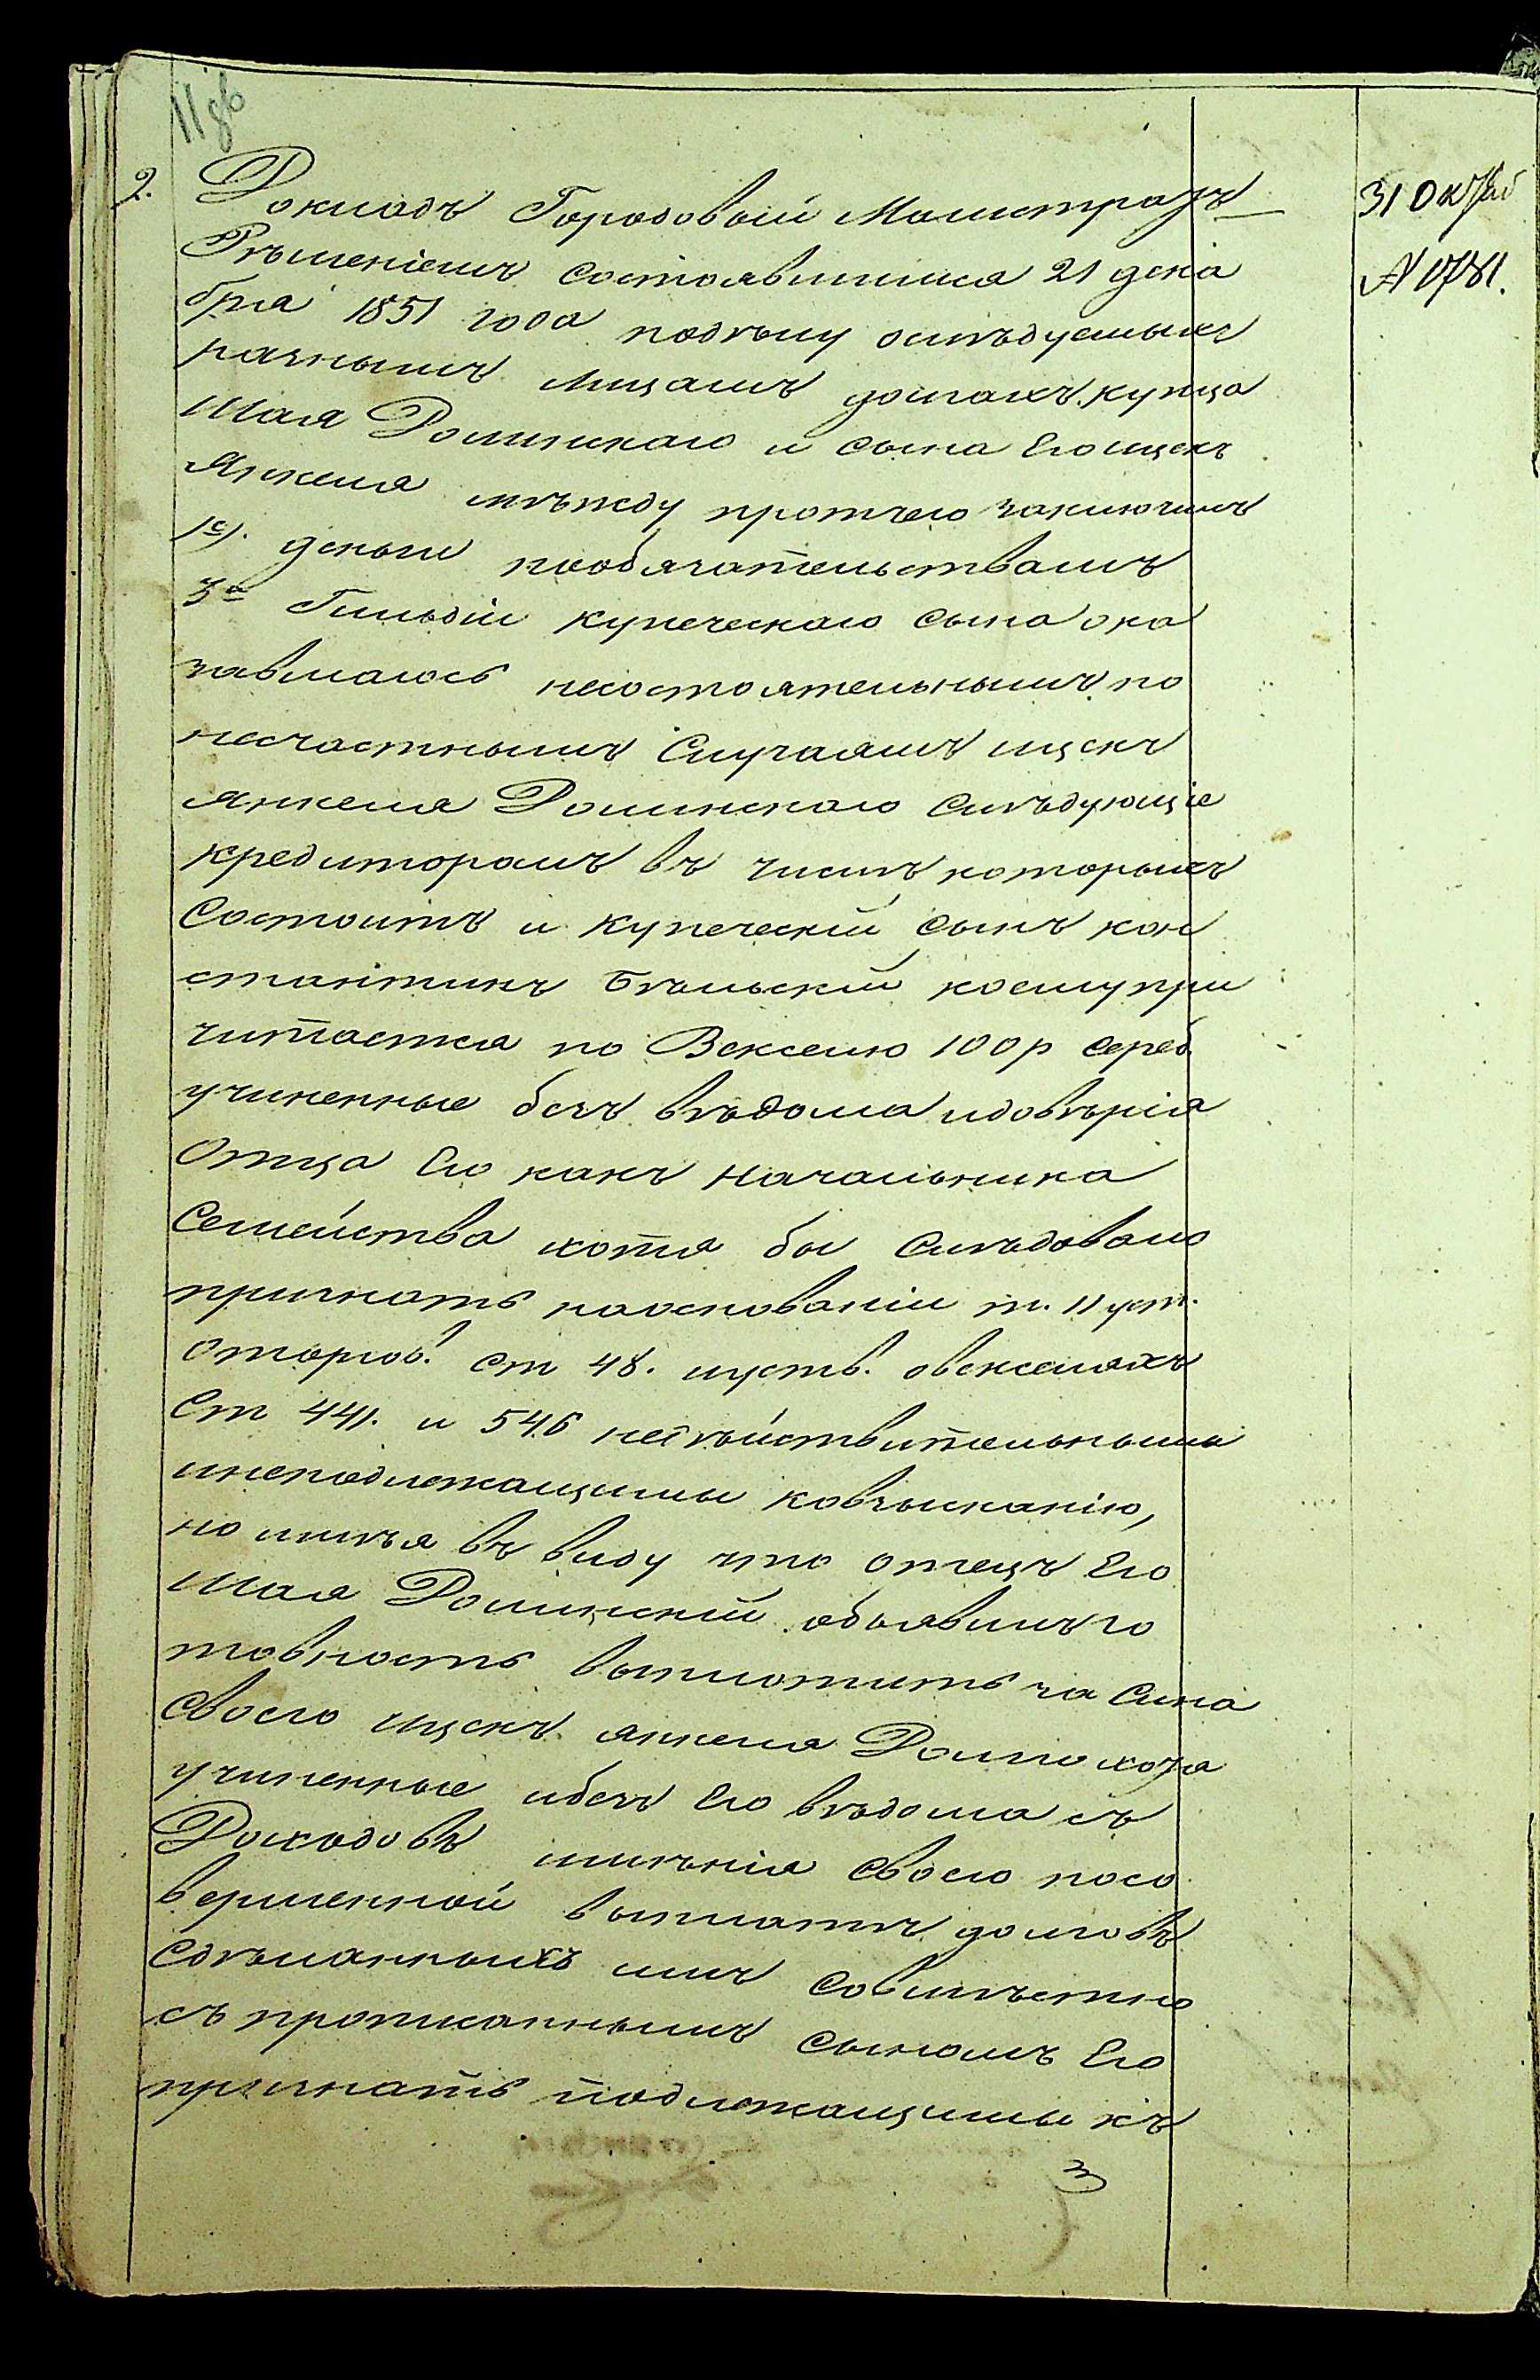 11 об
2. Докладъ Городовый Магистратъ
31 Октяб
Рѣшеніемъ состоявшимся 21 дека
№ 1781.
бря 1851 года подѣлуослѣдуемыхъ
разнымъ лицамъ долгахъ купца
Шая Долинскаго и сына Его ицек
Янкеля мѣжду протчего заключилъ
1е). деньги пообязательствамъ
3й Гильдіи купеческаго сына ока
завшагось несостоятельнымъ по
несчастнымъ Случаямъ ицекъ
янкеля Долинскаго Слѣдующіе
кредиторамъ въ числѣ которыхъ
Состоитъ и купеческій сынъ кон
стантинъ Бѣльскій коему при
читаетя по Векселю 100 р сереб
учиненные безъ вѣдома идовѣрія
Отца Его какъ начальника
Семейства хотя бы Слѣдовало
признать наоснованіи т. 11 уст.
оторгов. ст 48. иуств. овекселяхъ
Ст 441. и 546 недѣйствительными
инеподлежащими ковзысканію,
но имѣя въ виду что отецъ Его
Шая Долинскій объявилъ го
товность выплотить за Сина
своего ицекъ янкеля Долги хотя
учиненные ибезъ Его вѣдома съ
Доходовъ имѣнія своего посо
вершенной выплатѣ долговъ
сдѣланныхъ имъ совмѣстно
съ прописаннымъ сыномъ Его
признать подлежащими къ